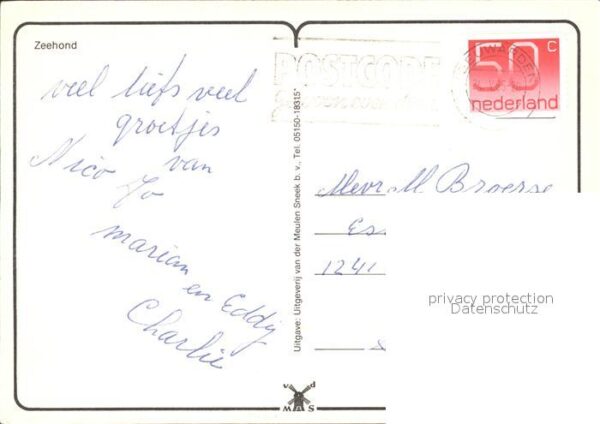 Zeehond
veel liefs veel
groetjes
van
Nico Jo
Marian en Eddy
Charlie
Uitgave: Uitgeverij van der Meulen Sneek b.v., Tel. 05150-18315*
v d
M S
POSTCODE
LEEUWARDEN
50 C
nederland
Mevr. M Broerse
Es
1241
privacy protection
Datenschutz